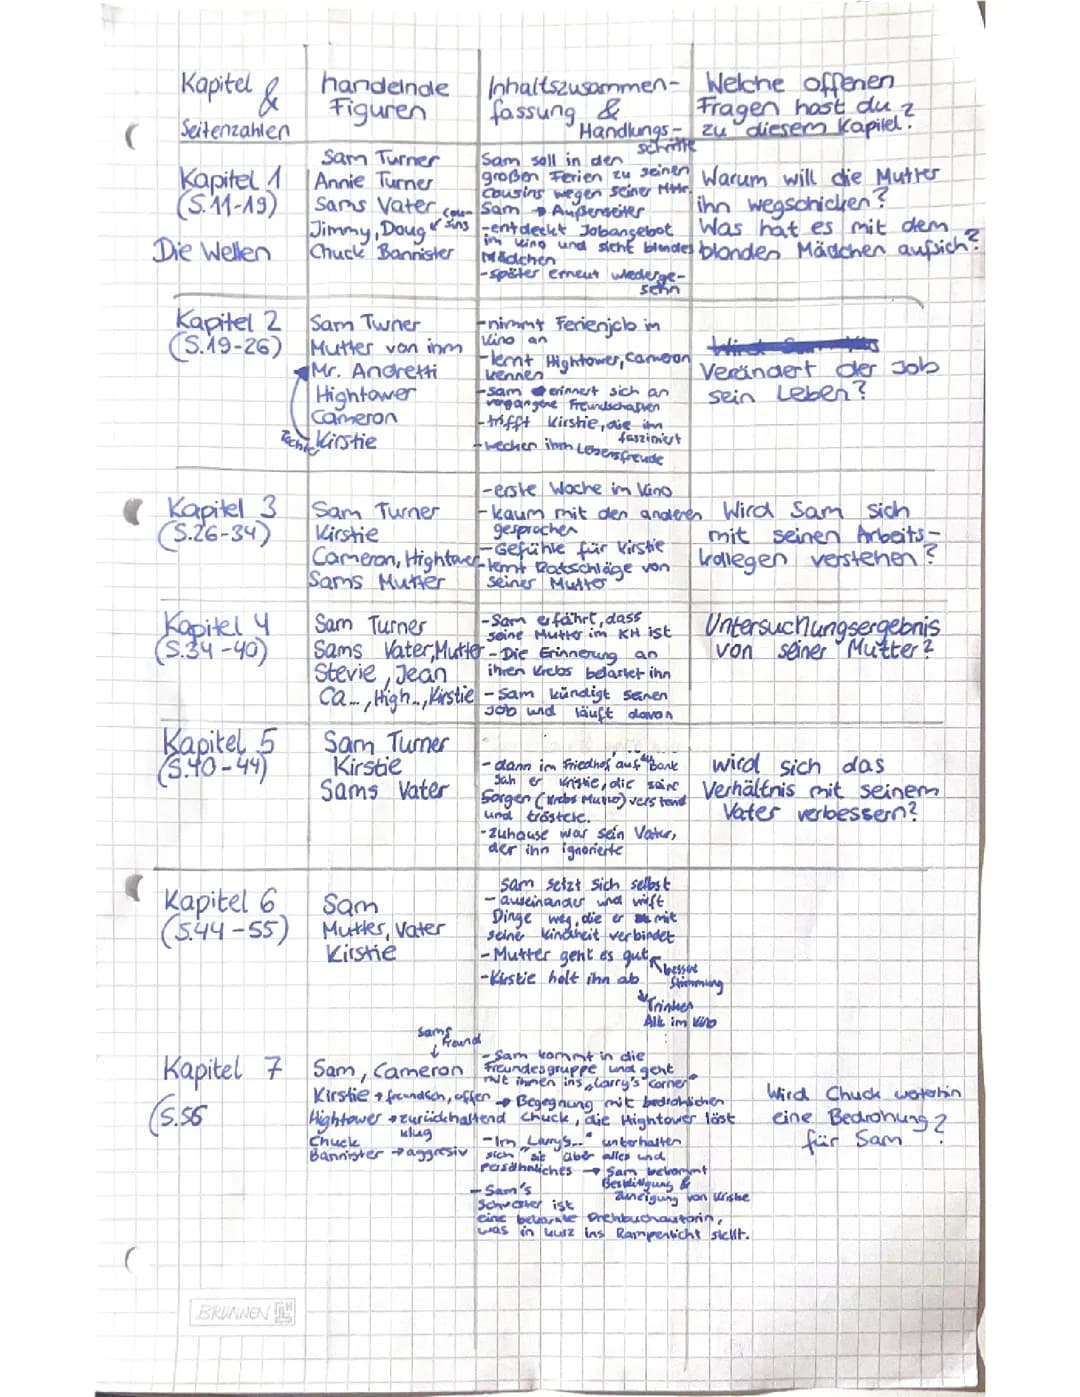 Kapitel &
Seitenzahlen
handelnde
Figuren
Inhaltszusammen-
fassung &
Handlungs-
schritte
Welche offenen
Fragen hast du
zu diesem Kapitel?
Kapitel 1
(S.11-19)
Die Wellen
Sam Turner
Annie Turner
Sams Vater
Jimmy, Doug cousins
Chuck Bannister
Sam soll in den
großen Ferien zu seinen
Cousins wegen seiner Mttr.
Sam → Außenseiter
-entdeckt Jobangebot
im Kino und sieht blondes
Mädchen
-später erneut wiederge-
sehn
Warum will die Mutter
ihn wegschicken?
Was hat es mit dem
blonden Mädchen aufsich?
Kapitel 2
(S.19-26)
Sam Turner
Mutter von ihm
Mr. Andretti
Hightower
Cameron
Kirstie
-nimmt Ferienjob in
Kino an
-lernt Hightower, Cameron
kennen
-Sam erinnert sich an
vergangene Freundschaften
-trifft Kirstie, die ihn
fasziniert
-wecken ihm Lebensfreude
Verändert der Job
sein Leben?
Kapitel 3
(S.26-34)
Sam Turner
Kirstie
Cameron, Hightower
Sams Mutter
-erste Woche im Kino
-kaum mit den anderen
gesprochen
-Gefühle für Kirstie
-lernt Ratschläge von
seiner Mutter
Wird Sam sich
mit seinen Arbeits-
kollegen verstehen?
Kapitel 4
(S.34-40)
Sam Turner
Sams Vater, Mutter
Stevie, Jean
Ca..., High.., Kirstie
-Sam erfährt, dass
seine Mutter im KH ist
-Die Erinnerung an
ihren Krebs belastet ihn
-Sam kündigt seinen
Job und läuft davon
Untersuchungsergebnis
von seiner Mutter?
Kapitel 5
(S.40-44)
Sam Turner
Kirstie
Sams Vater
-dann im Friedhof auf Bank
sah er Kirstie, die seine
Sorgen (Krebs Mutter) verstand
und tröstete.
-zuhause war sein Vater,
der ihn ignorierte
wird sich das
Verhältnis mit seinem
Vater verbessern?
Kapitel 6
(S.44-55)
Sam
Mutter, Vater
Kirstie
Sam setzt sich selbst
-auseinander und wirft
Dinge weg, die er mit
seine Kindheit verbindet
-Mutter geht es gut
bessere
Stimmung
-Kirstie holt ihn ab
Trinken
Alk im Kino
Kapitel 7
(S.56
Sams
Freund
Sam, Cameron
Kirstie → freundsch, offen
Hightower → zurückhaltend
klug
Chuck
Bannister → aggresiv
-Sam kommt in die
Freundesgruppe und geht
mit ihnen ins „Larry's Corner"
→ Begegnung mit bedrohlichen
Chuck, die Hightower löst
-Im „Larry's..." unterhalten
sich sie über alles und
persönliches → Sam bekommt
Bestätigung &
Zuneigung von Kirstie
-Sam's
Schwester ist
eine bekannte Drehbuchautorin,
was in kurz ins Rampenlicht stellt.
Wird Chuck weiterhin
eine Bedrohung
für Sam?
BRUNNEN